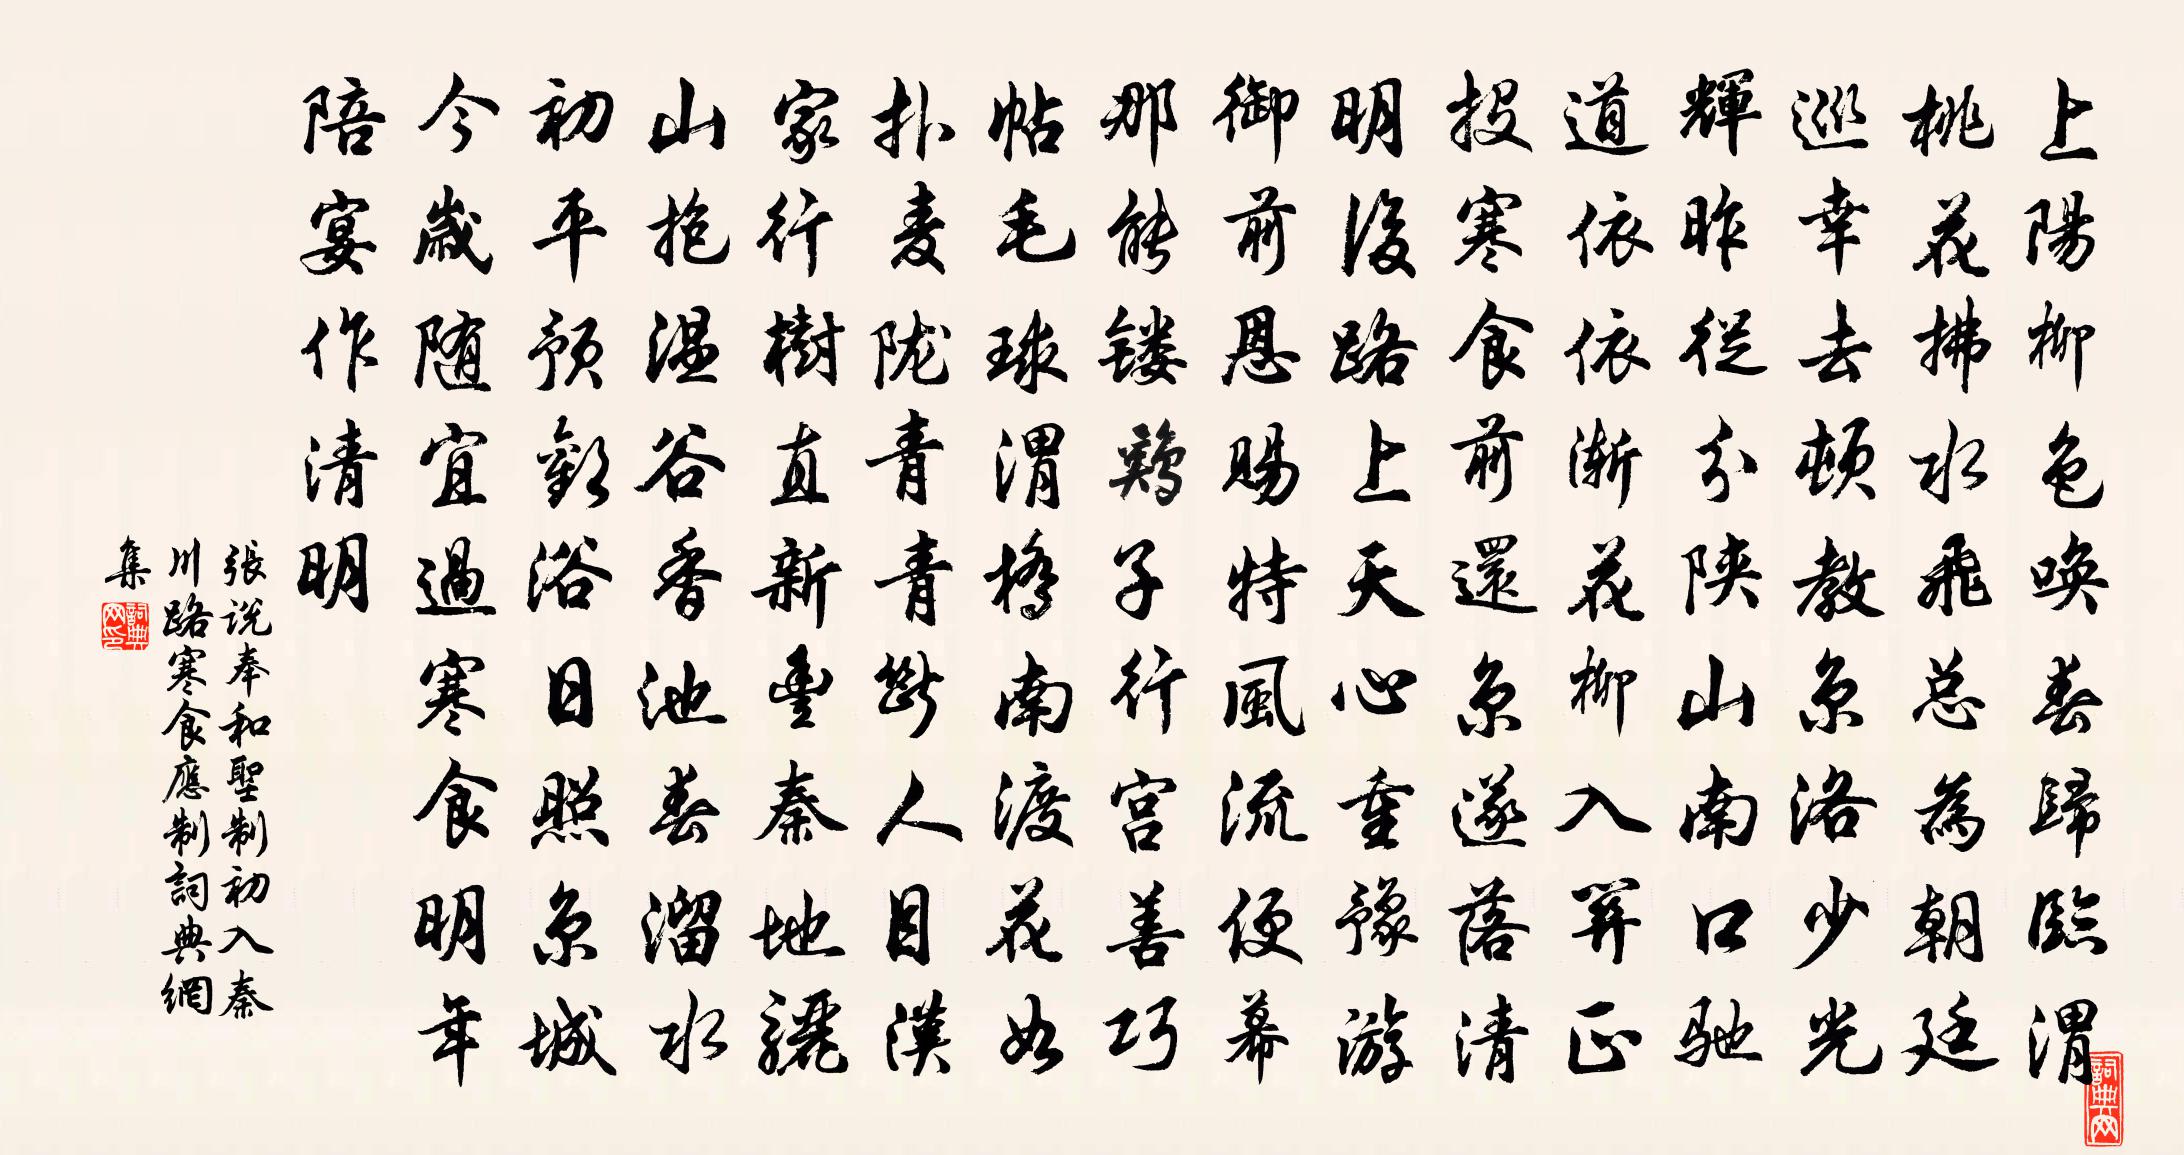 上陽柳色喚春歸臨渭
桃花拂水飛总為朝廷
巡幸去頓教京洛少光
輝昨從分陝山南口馳
道依依漸花柳入関正
投寒食前還京遂落清
明後路上天心重豫游
御前恩賜特風流便幕
那能镂鷄子行宫善巧
帖毛球渭橋南渡花如
扑麦陇青青斷人目漢
家行樹直新豐秦地驪
山抱温谷香池春溜水
初平预歡浴日照京城
今歲随宜過寒食明年
陪宴作清明
張说奉和聖制初入秦
川路寒食應制詞典網
集
詞典网